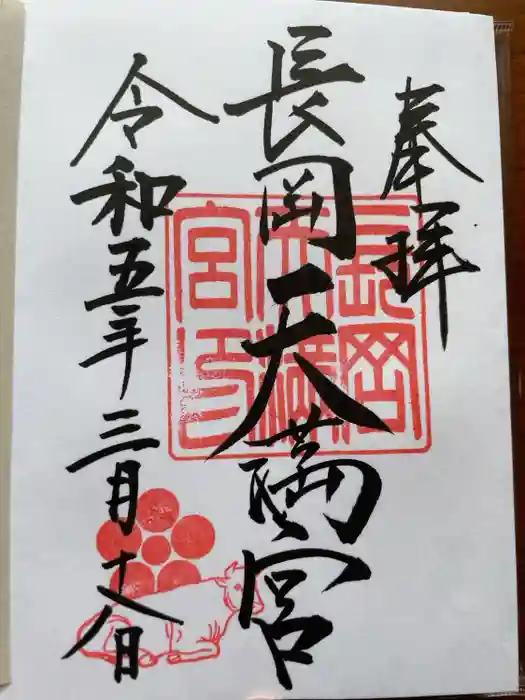 奉拝
長岡天満宮
長岡天満宮印
令和五年三月十八日